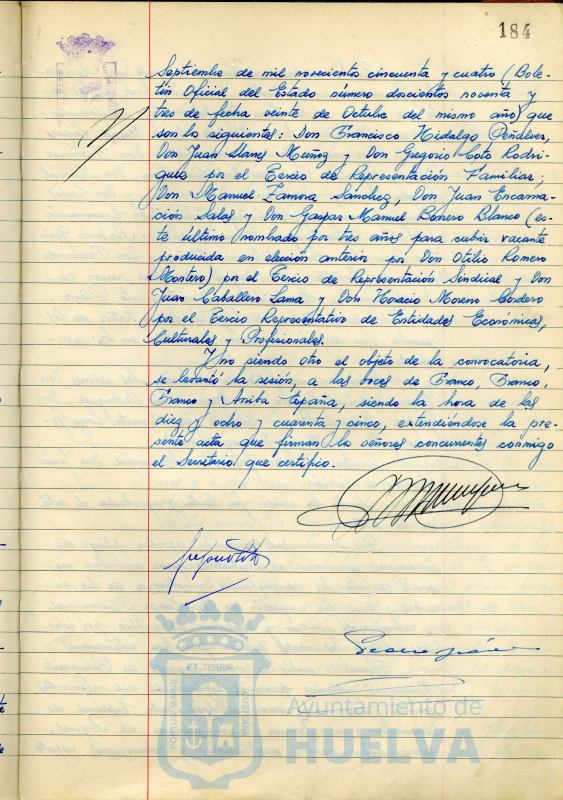 184
Septiembre de mil novecientos cincuenta y cuatro (Bole-
tín Oficial del Estado número doscientos noventa y
tres de fecha veinte de Octubre del mismo año) que
son los siguientes: Don Francisco Hidalgo Peñalver,
Don Juan Llanes Muñoz y Don Gregorio Coto Rodrí-
guez por el Tercio de Representación Familiar;
Don Manuel Zamora Sánchez, Don Juan Encarna-
ción Salas y Don Gaspar Manuel Romero Blanco (es-
te último nombrado por tres años para cubrir vacante
producida en elección anterior por Don Otilio Romero
Montero) por el Tercio de Representación Sindical y Don
Juan Caballero Lama y Don Horacio Moreno Cordero
por el Tercio Representativo de Entidades Económicas,
Culturales y Profesionales.
Y no siendo otro el objeto de la convocatoria,
se levantó la sesión, a las voces de Franco, Franco,
Franco y Arriba España, siendo la hora de las
diez y ocho y cuarenta y cinco, extendiéndose la pre-
sente acta que firman los señores concurrentes conmigo
el Secretario que certifico.
ET TERRÆ
PORTUS MARIS
CUSTODIA
Ayuntamiento de
HUELVA